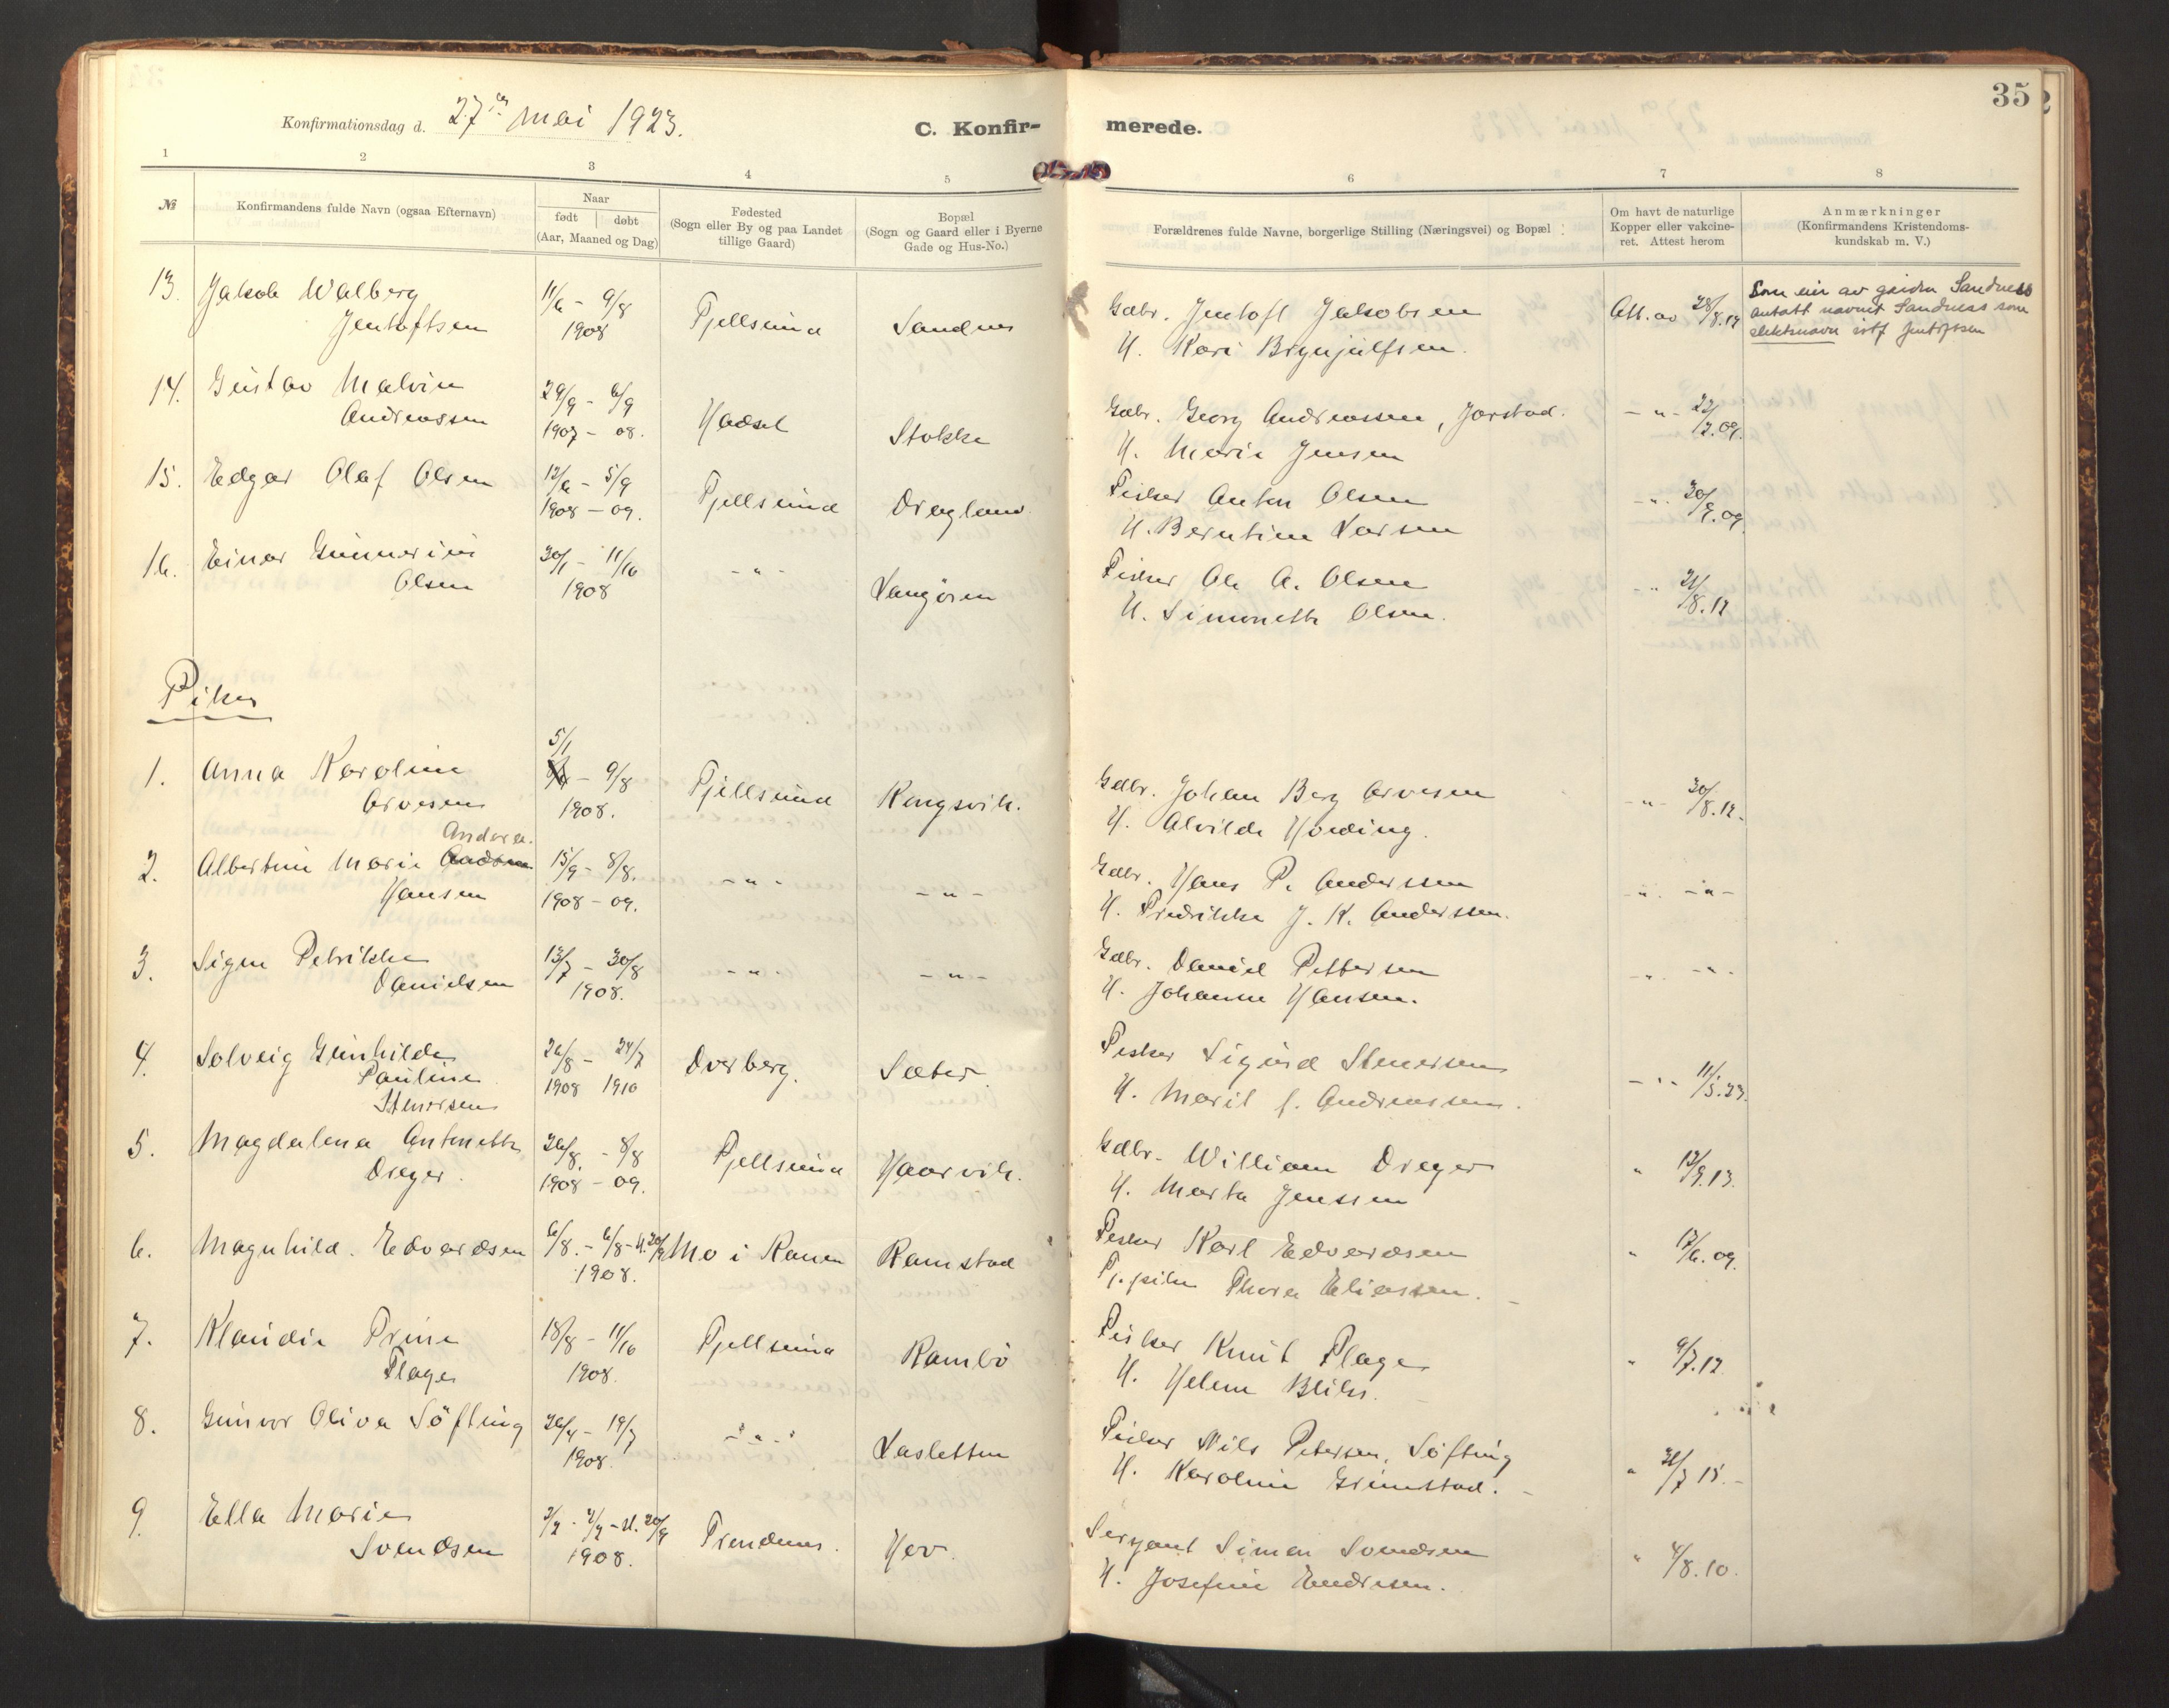 35
Konfirmationsdag d. 27de mai 1923.
C. Konfir-
merede.
1 2 3 4 5 6 7 8
№
Konfirmandens fulde Navn (ogsaa Efternavn)
Naar
født | døbt
(Aar, Maaned og Dag)
Fødested
(Sogn eller By og paa Landet
tillige Gaard)
Bopæl
(Sogn og Gaard eller i Byerne
Gade og Hus-No.)
Forældrenes fulde Navne, borgerlige Stilling (Næringsvei) og Bopæl
Om havt de naturlige
Kopper eller vakcine-
ret. Attest herom
Anmærkninger
(Konfirmandens Kristendoms-
kundskab m. V.)
13. Jakob Walberg
Jentoftsen
11/6 - 9/8
1908
Fjellsund
Sandnes
Gdbr. Jentoft Jakobsen
H. Kari Brynjulfsen.
Att. av 28/8.19
Som eier av gården Sandness
antatt navnet Sandness som
slektsnavn istf Jentoftsen
14. Gustav Malvin
Andreassen
29/9 - 6/9
1907 - 08.
Hadsel
Stokke
Gdbr. Georg Andreassen, Jorstad.
H. Marie Jensen
- " - 22/7.09.
15. Edgar Olaf Olsen
12/6 - 5/9
1908 - 09.
Fjellsund
Dragland
Fisker Anton Olsen
H. Berntine Larsen
- " - 30/9.09
16. Einar Gunnerius
Olsen
30/1 - 11/10
1908
- " -
Langøren
Fisker Ole A. Olsen
H. Simonette Olsen.
- " 21/8.12
Piker
1. Anna Karoline
Arvesen
5/1
- 9/8
1908.
Fjellsund
Kongsvik.
Gdbr. Johan Berg Arvesen
H. Alvilde Hveding.
- " - 30/8.12.
2. Albertine Marie Andrea
Hansen
15/9 - 8/8.
1908 - 09.
- " -
- " -
Gdbr. Hans P. Anderssen
H. Fredrikke J. K. Anderssen.
- " - " -
3. Signe Petrikke
Danielsen
13/7 - 30/8
1908.
- " -
- " -
Gdbr. Daniel Pettersen
H. Johanne Hansen.
- " - " -
4. Solveig Gunhilde
Pauline
Stenersen
26/8 - 24/7
1908 1910
Dverberg.
Sæter.
Fisker Sigurd Stenersen
H. Marit f. Andreassen.
- " - 11/5.23.
5. Magdalena Antonette
Dreyer.
26/8. - 8/8
1908 - 09.
Fjellsund
Haarvik.
Gdbr. William Dreyer
H. Marta Jenssen
" 12/9.13.
6. Magnhild. Edvardsen
6/8. - 6/8 - st. 20/9
1908.
Mo i Ranen
Ramstad
Fisker Karl Edvardsen
Fj. pike Thora Eliassen.
" 17/6.09.
7. Klaudie Trine
Flage
18/8 - 11/10
1908.
Fjellsund
Rambø
Fisker Knut Flage
H. Helene Bliks.
" 9/7.12.
8. Gunvor Oliva Söfting
26/4 - 19/7
1908.
- " -
Lasletten
Fisker Nils Petersen Söfting
H. Karoline Grimstad.
" 31/7 15.-
9. Ella Marie
Svendsen
2/2 - 4/2 - st. 20/9
1908.
Trondenes.
Hov.
Sergant Simon Svendsen
H. Josefine Endresen.
" 4/8.10.